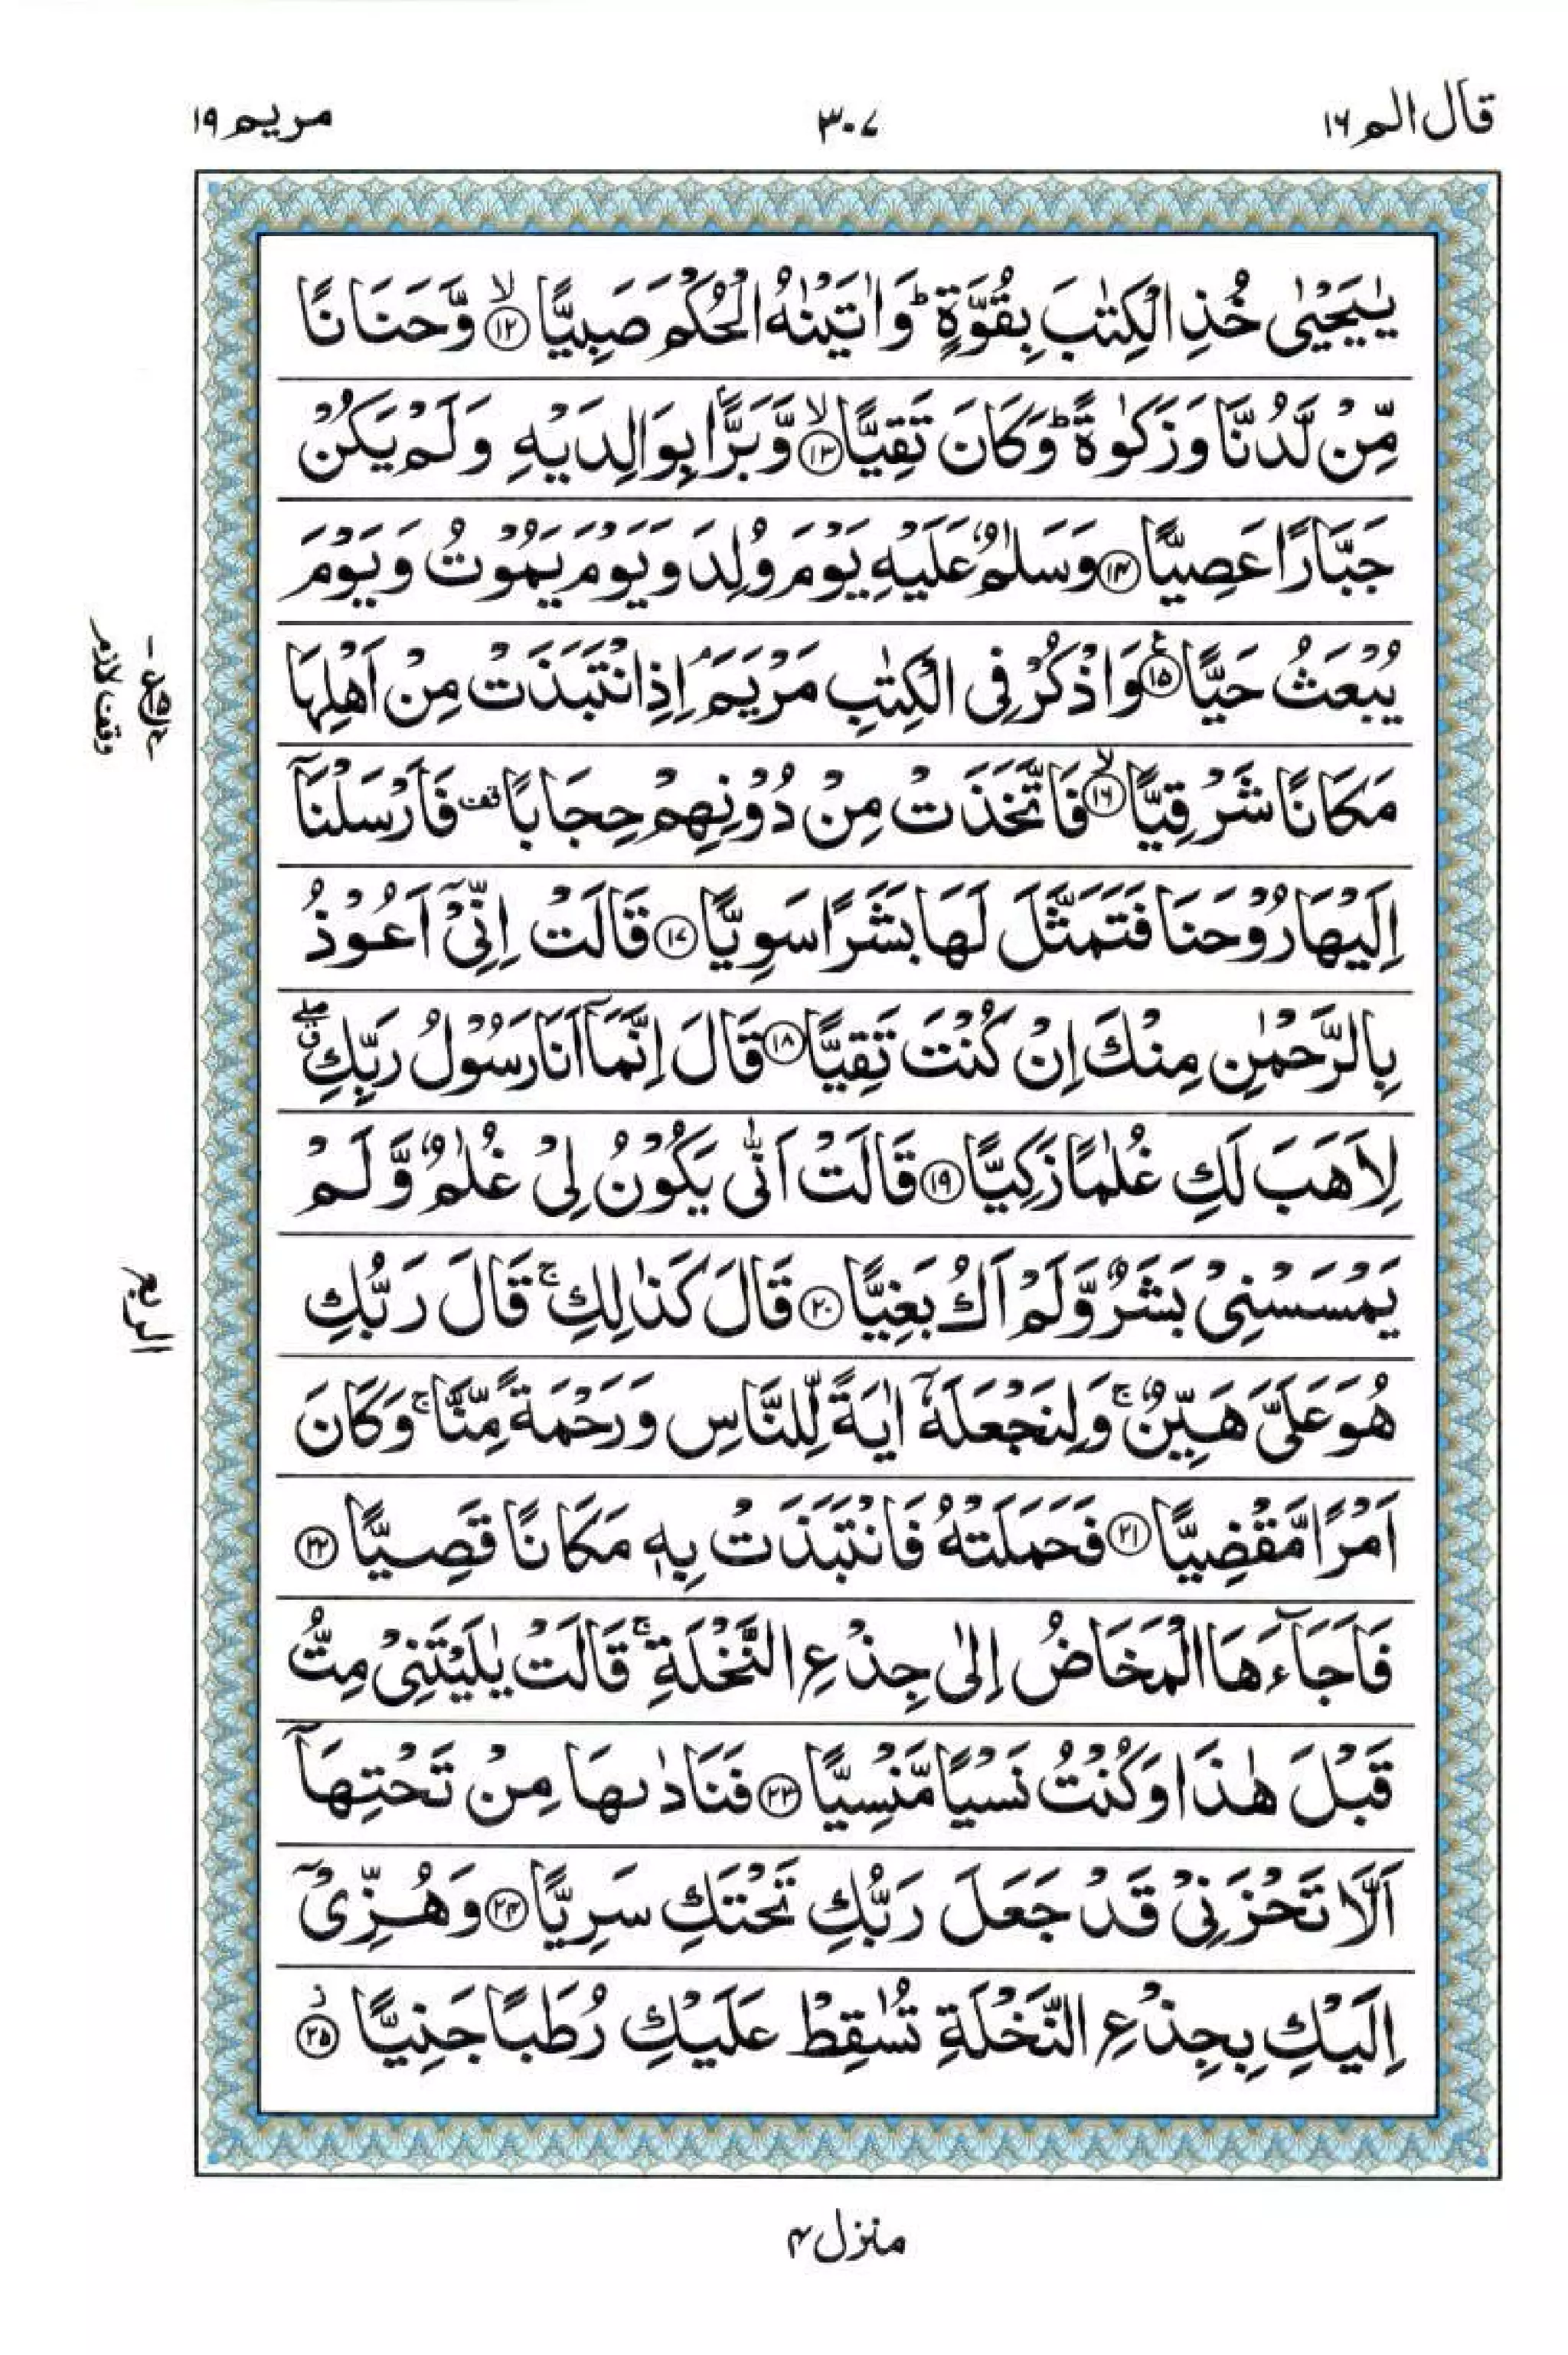 قال الم ١٦
٣٠٧
مريم ١٩
يٰيَحْيٰى خُذِ الْكِتٰبَ بِقُوَّةٍ ؕ وَاٰتَيْنٰهُ الْحُكْمَ صَبِيًّا ۙ‏﴿۱۲﴾ وَّحَنَانًا
مِّنْ لَّدُنَّا وَزَكٰوةً ؕ وَكَانَ تَقِيًّا ۙ‏﴿۱۳﴾ وَّبَرًّۢا بِوَالِدَيْهِ وَلَمْ يَكُنْ
جَبَّارًا عَصِيًّا ﴿۱۴﴾ وَسَلٰمٌ عَلَيْهِ يَوْمَ وُلِدَ وَيَوْمَ يَمُوْتُ وَيَوْمَ
يُبْعَثُ حَيًّا ﴿۱۵﴾ۧ وَاذْكُرْ فِى الْكِتٰبِ مَرْيَمَ ۘ اِذِ انْتَبَذَتْ مِنْ اَهْلِهَا
مَكَانًا شَرْقِيًّا ۙ‏﴿۱۶﴾ فَاتَّخَذَتْ مِنْ دُوْنِهِمْ حِجَابًا قف فَاَرْسَلْنَاۤ
اِلَيْهَا رُوْحَنَا فَتَمَثَّلَ لَهَا بَشَرًا سَوِيًّا ﴿۱۷﴾ قَالَتْ اِنِّىْۤ اَعُوْذُ
بِالرَّحْمٰنِ مِنْكَ اِنْ كُنْتَ تَقِيًّا ﴿۱۸﴾ قَالَ اِنَّمَاۤ اَنَا رَسُوْلُ رَبِّكِ ۖق
لِاَهَبَ لَكِ غُلٰمًا زَكِيًّا ﴿۱۹﴾ قَالَتْ اَنّٰى يَكُوْنُ لِىْ غُلٰمٌ وَّلَمْ
يَمْسَسْنِىْ بَشَرٌ وَّلَمْ اَكُ بَغِيًّا ﴿۲۰﴾ قَالَ كَذٰلِكِ ۚ قَالَ رَبُّكِ
هُوَ عَلَىَّ هَيِّنٌ ۚ وَلِنَجْعَلَهٗۤ اٰيَةً لِّلنَّاسِ وَرَحْمَةً مِّنَّا ۚ وَكَانَ
اَمْرًا مَّقْضِيًّا ﴿۲۱﴾ فَحَمَلَتْهُ فَانْتَبَذَتْ بِهٖ مَكَانًا قَصِيًّا ﴿۲۲﴾
فَاَجَآءَهَا الْمَخَاضُ اِلٰى جِذْعِ النَّخْلَةِ ۚ قَالَتْ يٰلَيْتَنِىْ مِتُّ
قَبْلَ هٰذَا وَكُنْتُ نَسْيًا مَّنْسِيًّا ﴿۲۳﴾ فَنَادٰٮهَا مِنْ تَحْتِهَاۤ
اَلَّا تَحْزَنِىْ قَدْ جَعَلَ رَبُّكِ تَحْتَكِ سَرِيًّا ﴿۲۴﴾ وَهُزِّىْۤ
اِلَيْكِ بِجِذْعِ النَّخْلَةِ تُسٰقِطْ عَلَيْكِ رُطَبًا جَنِيًّا ﴿۲۵﴾ز
وقف لازم
الربع
منزل ۴